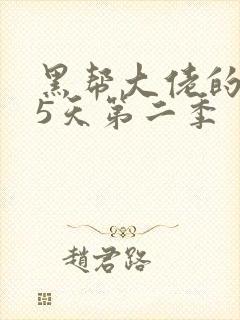 黑帮大佬的
5天第二季
趙君路